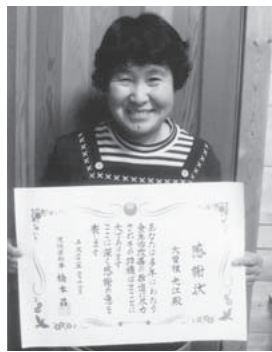 感謝状
大曽根光江殿
あなたは多年にわたり
食生活改善の推進に尽力
されその功績はまことに
大であります
ここに深く感謝の意を
表します
茨城県知事 橋本昌